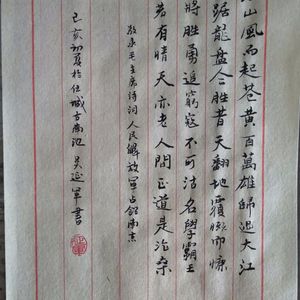 山風雨起蒼黄百萬雄師過大江
踞龍盤今勝昔天翻地覆慨而慷
將勝勇追窮寇不可沽名學霸王
若有情天亦老人間正道是滄桑
敬录毛主席诗词人民解放军占領南京
己亥初夏於任城古南池吴延军書